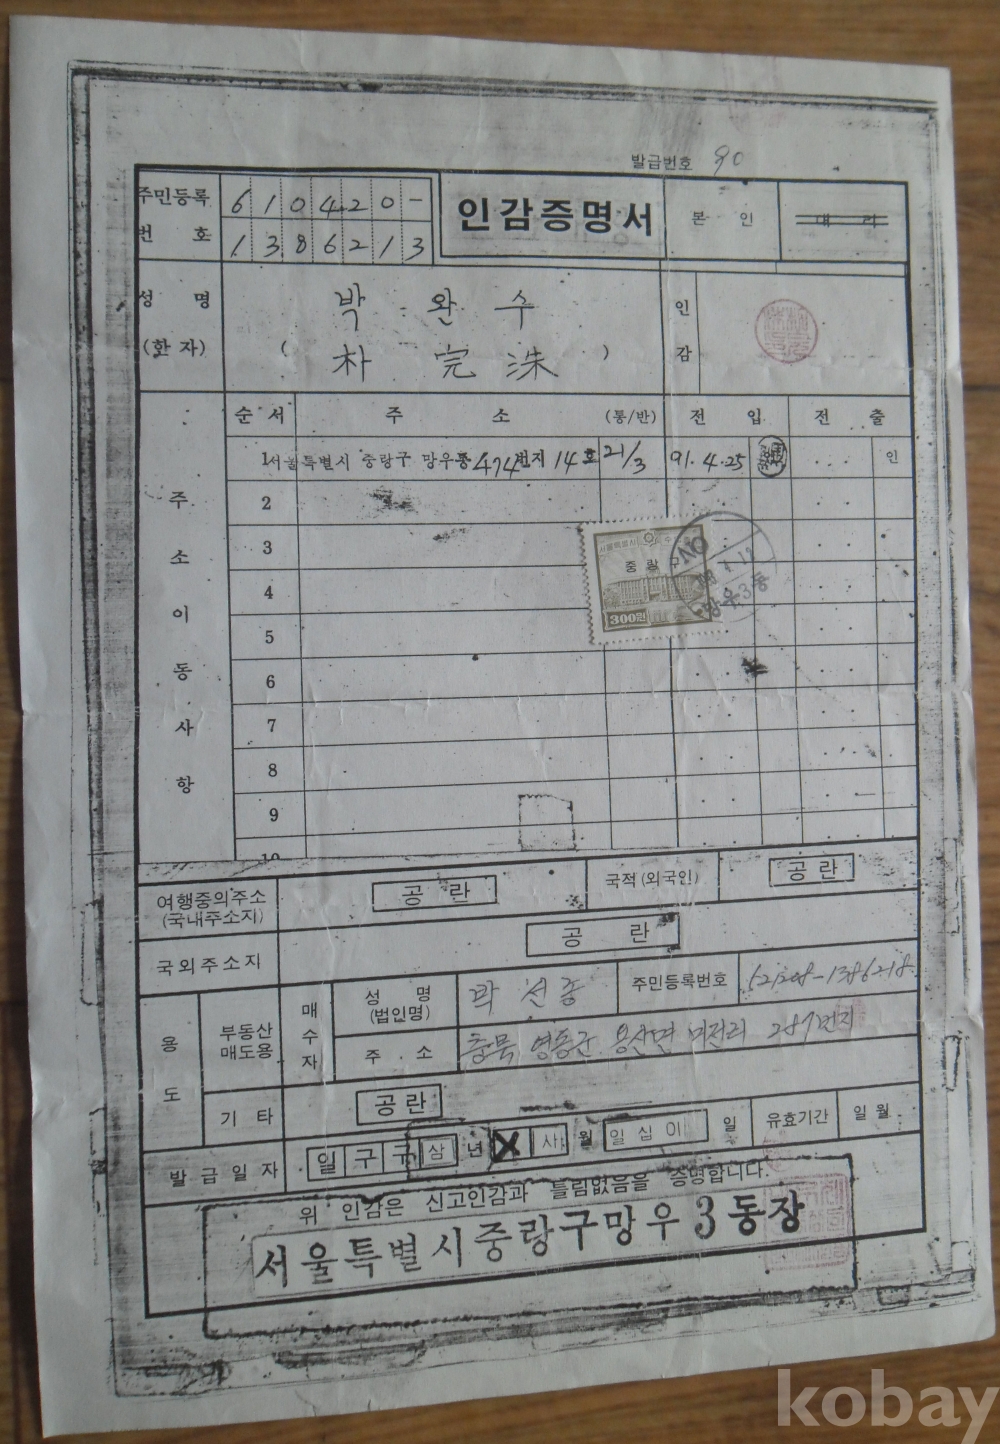 발급번호 90
주민등록번호 610420-1386213
인감증명서
본인
대리
성명 박완수
(한자) (朴完洙)
인감
주소이동사항
순서 주소 (통/반) 전입 전출
1 서울특별시 중랑구 망우동 474번지 14호 21/3 91.4.25 인
2
3
4
5
6
7
8
9
10
서울특별시
중랑구
300원
망우3동
여행중의주소
(국내주소지)
공란
국적(외국인)
공란
국외주소지
공란
용도
부동산
매도용
매수자
성명
(법인명)
박선종
주민등록번호
주소
충북 영동군 용산면 287번지
기타
공란
발급일자 일구구삼년 사월 일십이일
유효기간 일월
위 인감은 신고인감과 틀림없음을 증명합니다.
서울특별시중랑구망우3동장
kobay